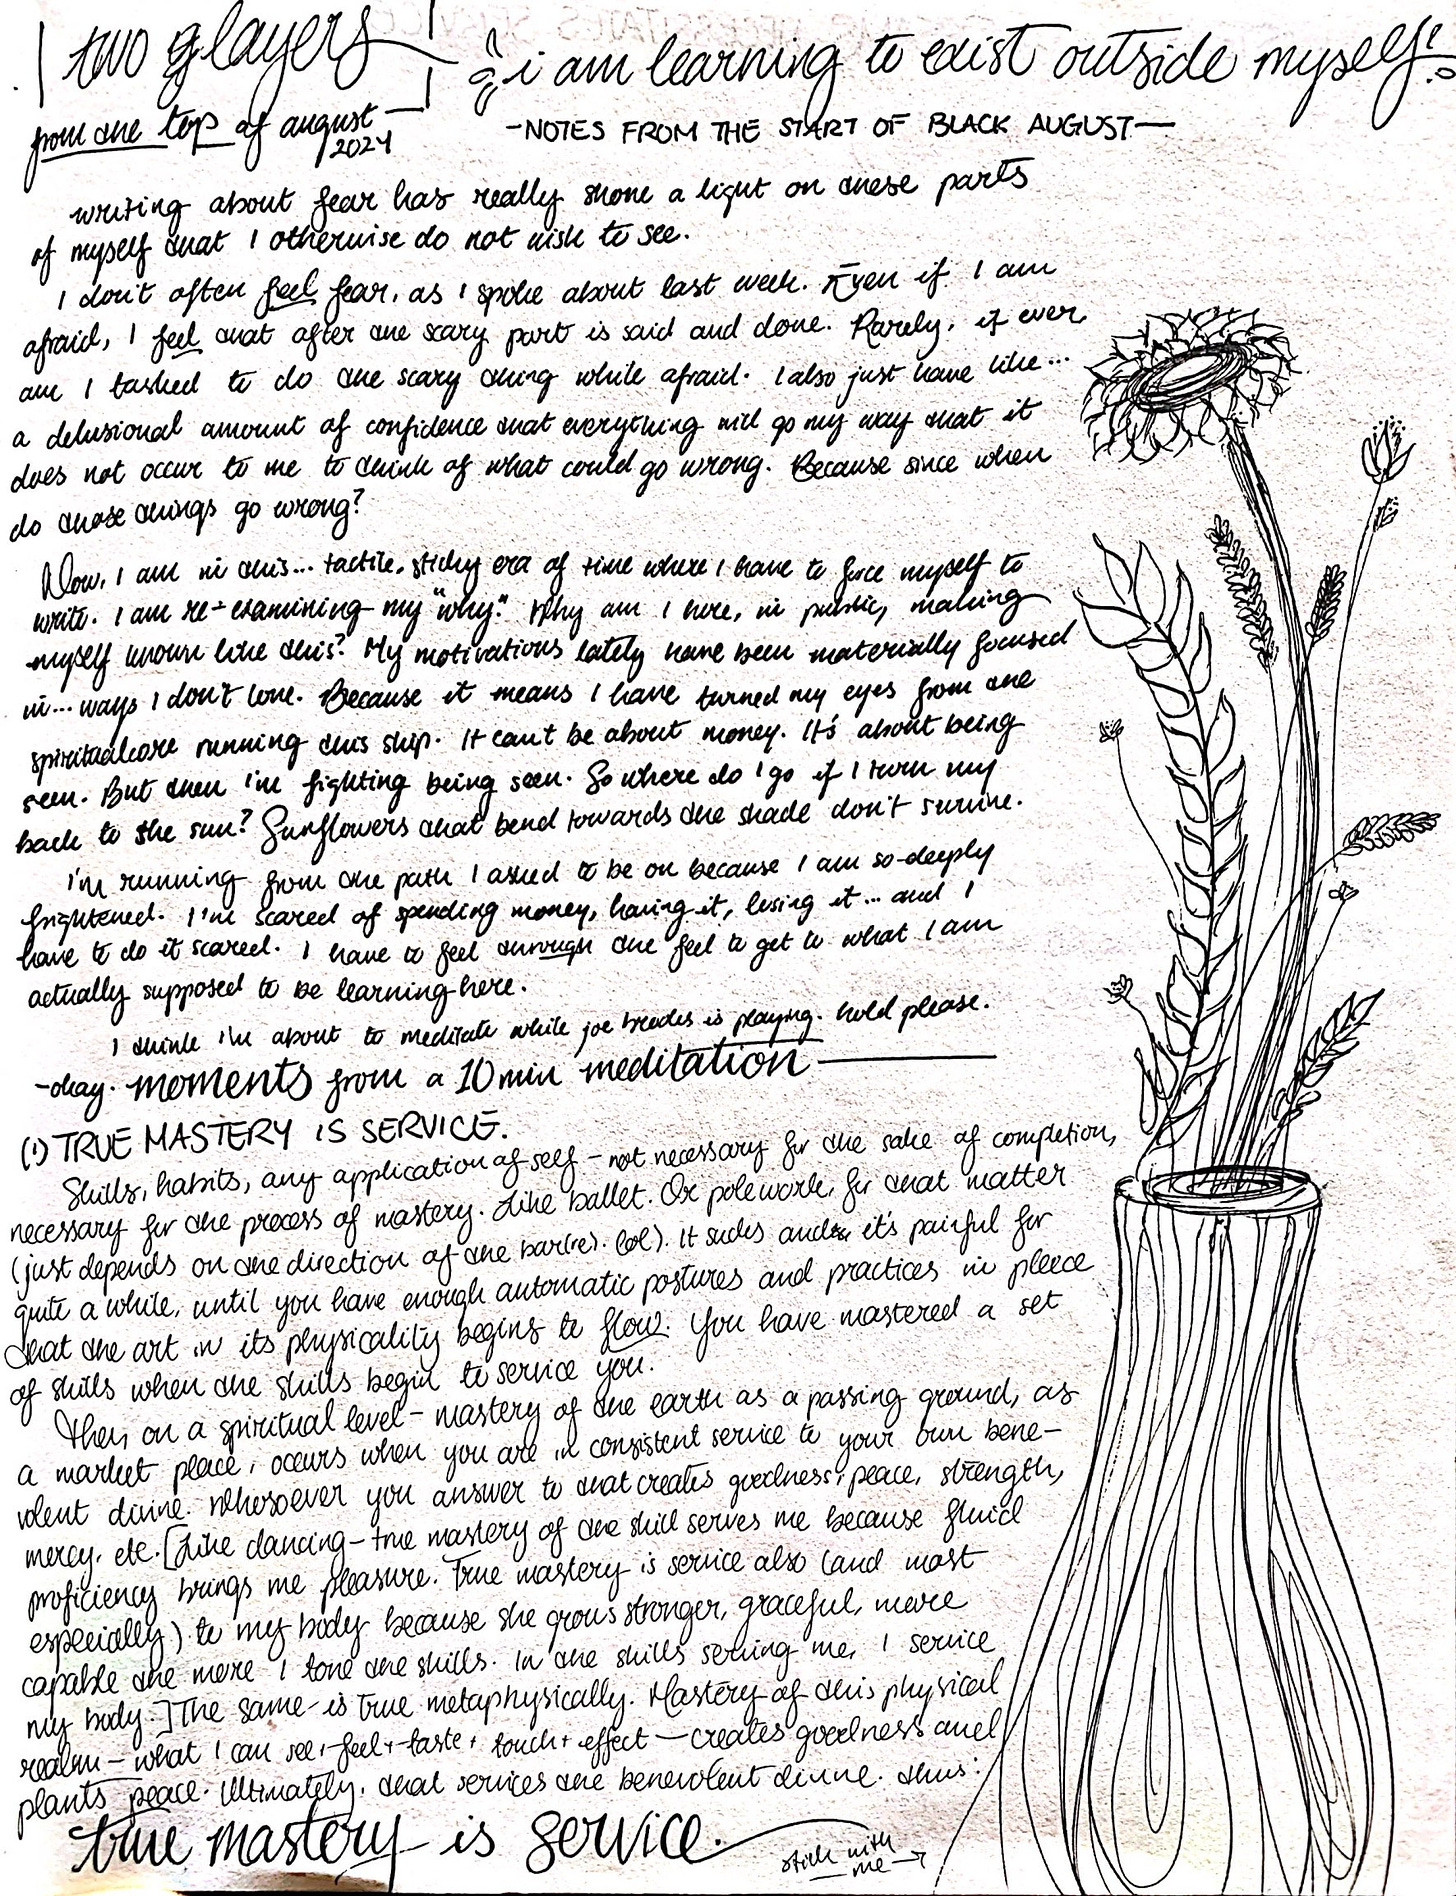 two players
from the top of august
2024
i am learning to exist outside myself!
-NOTES FROM THE START OF BLACK AUGUST-
writing about fear has really shone a light on these parts
of myself that I otherwise do not wish to see.
I don't often feel fear, as I spoke about last week. Even if I am
afraid, I feel that after the scary part is said and done. Rarely, if ever
am I tasked to do the scary thing while afraid. I also just have like...
a delusional amount of confidence that everything will go my way that it
does not occur to me to think of what could go wrong. Because since when
do those things go wrong?
Now, I am in this... tactile, sticky era of time where I have to force myself to
write. I am re-examining my "why." Why am I here, in public, making
myself known like this? My motivations lately have been materially focused
in... ways I don't love. Because it means I have turned my eyes from the
spiritual core running this ship. It can't be about money. It's about being
seen. But then I'm fighting being seen. So where do I go if I turn my
back to the sun? Sunflowers that bend towards the shade don't survive.
I'm running from the path I asked to be on because I am so-deeply
frightened. I'm scared of spending money, having it, losing it... and I
have to do it scared. I have to feel through the feel to get to what I am
actually supposed to be learning here.
I think I'm about to meditate while joe is playing. hold please.
-okay. moments from a 10 min meditation
(1) TRUE MASTERY IS SERVICE.
Skills, habits, any application of self - not necessary for the sake of completion,
necessary for the process of mastery. Like ballet. Or polework, for that matter
(just depends on the direction of the bar(re). lol). It sucks and it's painful for
quite a while, until you have enough automatic postures and practices in pleece
that the art in its physicality begins to flow. You have mastered a set
of skills when the skills begin to service you.
Then on a spiritual level - mastery of the earth as a passing ground, as
a market place, occurs when you are in consistent service to your own bene-
volent divine. Whosoever you answer to that creates goodness, peace, strength,
mercy, etc. [Like dancing - true mastery of the skill serves me because fluid
proficiency brings me pleasure. True mastery is service also (and most
especially) to my body because she grows stronger, graceful, more
capable the more I tone the skills. In the skills serving me, I service
my body.] The same is true metaphysically. Mastery of this physical
realm - what I can see + feel + taste + touch + effect - creates goodness and
plants peace. Ultimately, that services the benevolent divine. thus:
true mastery is service.
stick with
me →